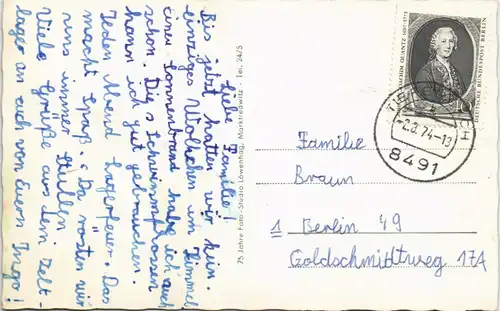 Liebe Familie!
Bis jetzt hatten wir kein
einziges Wölkchen am Himmel
einen Sonnenbrand habe ich auch
schon. Die Schwimmflossen
kann ich gut gebrauchen.
Jeden Abend Lagerfeuer. Das
macht Spaß. Da rösten wir
uns immer Stullen
Viele Grüße aus dem Zelt-
lager an auch von Euern Ingo!
75 Jahre Foto-Studio Löwenhag, Marktredwitz - Tel. 24/5
JOACHIM QUANTZ 1697-1773
DEUTSCHE BUNDESPOST BERLIN
-2.8.74-13
8491
Familie
Braun
1 Berlin 49
Goldschmidtweg 17A